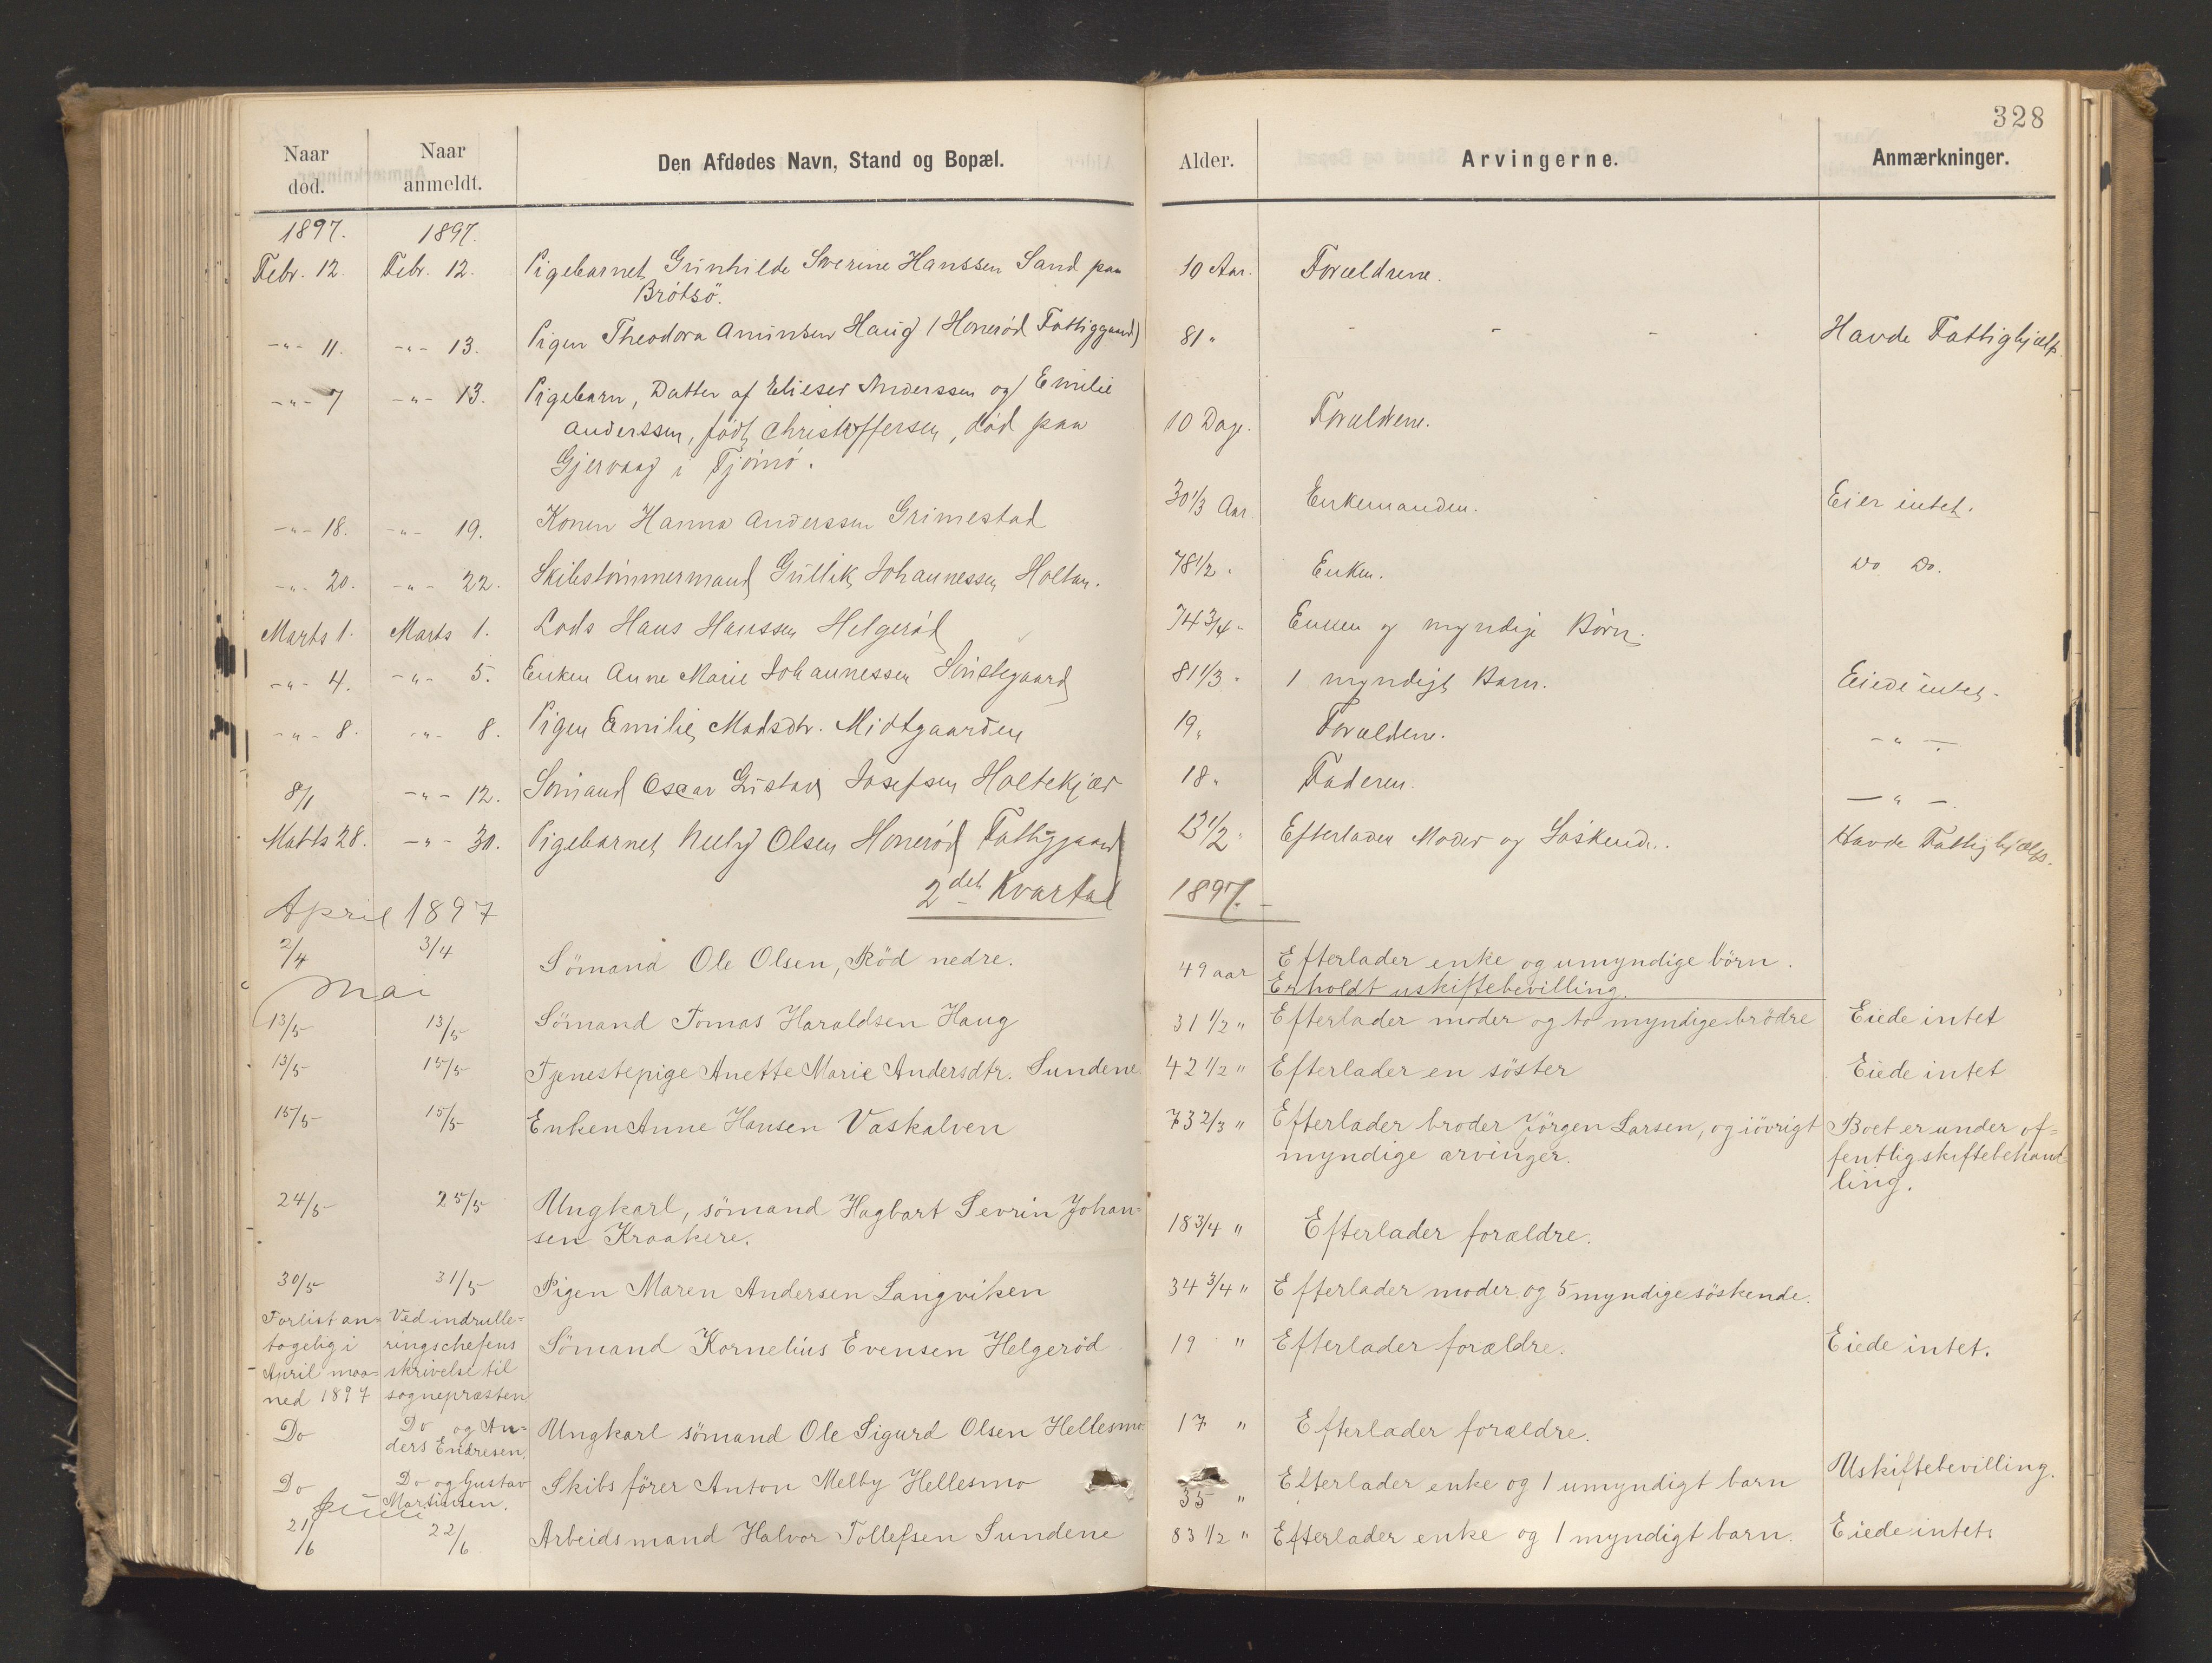 328
Naar død. Naar anmeldt. Den Afdødes Navn, Stand og Bopæl. Alder. Arvingerne. Anmærkninger.
1897. 1897.
Febr. 12. Febr. 12. Pigebarnet Gunhilde Severine Hanssen Sand paa 10 Aar. Forældrene.
Brøtsö.
-"- 11. -"- 13. Pigen Theodora Amundsen Haug (Honerød Fattiggaard) 81 " - - - Havde Fattighjælp.
-"- 7 -"- 13. Pigebarn, Datter af Elieser Anderssen og Emilie
Anderssen, født Christoffersen, død paa 10 Dage. Forældrene.
Gjervaag i Tjømø.
-"- 18. -"- 19. Konen Hanna Anderssen Grimestad 30 1/3 Aar Enkemanden. Eier intet.
-"- 20. -"- 22. Skibstømmermand Gullik Johannessen Holtan. 78 1/2 " Enken. Do Do.
Marts 1. Marts 1. Lods Hans Hanssen Helgerød 74 3/4 " Enken og myndige Børn.
-"- 4. -"- 5. Enken Anne Marie Johannessen 81 1/3 " 1 myndigt Barn. Eiede intet.
-"- 8. -"- 8. Pigen Emilie Madsdtr. Midtgaarden 19 " Forældrene. -"-
8/1 -"- 12. Sømand Oscar Gustav Josefsen Holtekjær 18 " Faderen. -"-
Marts 28. -"- 30. Pigebarnet Olsen Honerød Fattiggaard 13 1/2 " Efterlader Moder og Søskende. Havde Fattighjælp.
2det Kvartal 1897.
April 1897
2/4 3/4 Sömand Ole Olsen, Röd nedre. 49 aar Efterlader enke og umyndige börn.
Erholdt uskiftebevilling.
Mai
13/5 13/5 Sömand Tomas Haraldsen Haug 31 1/2 " Efterlader moder og to myndige brödre Eiede intet
13/5 15/5 Tjenestepige Anette Marie Andersdtr. Sundene. 42 1/2 " Efterlader en söster Eiede intet
15/5 15/5 Enken Anne Hansen Vaskalven 73 2/3 " Efterlader broder Jörgen Larsen, og iövrigt Boet er under of=
myndige arvinger. fentlig skiftebehand=
ling.
24/5 25/5 Ungkarl, sömand Hagbart Sevrin Johan=
sen Kraakere. 18 3/4 " Efterlader forældre.
30/5 31/5 Pigen Maren Andersen Langviken 34 3/4 " Efterlader moder og 5 myndige söskende.
Forlist an= Ved indrulle=
tagelig i ringschefens Sömand Kornelius Evensen Helgeröd 19 " Efterlader forældre. Eiede intet.
April maa= skrivelse til
ned 1897 sognepræsten
Do Do og An= Ungkarl sömand Ole Sigurd Olsen Hellesmo. 17 " Efterlader forældre.
ders Endresen.
Do Do og Gustav Skibsförer Anton Melby Hellesmo 35 " Efterlader enke og 1 umyndigt barn Uskiftebevilling.
Martinsen.
Juni
21/6 22/6 Arbeidsmand Halvor Tollefsen Sundene 83 1/2 " Efterlader enke og 1 myndigt barn. Eiede intet.